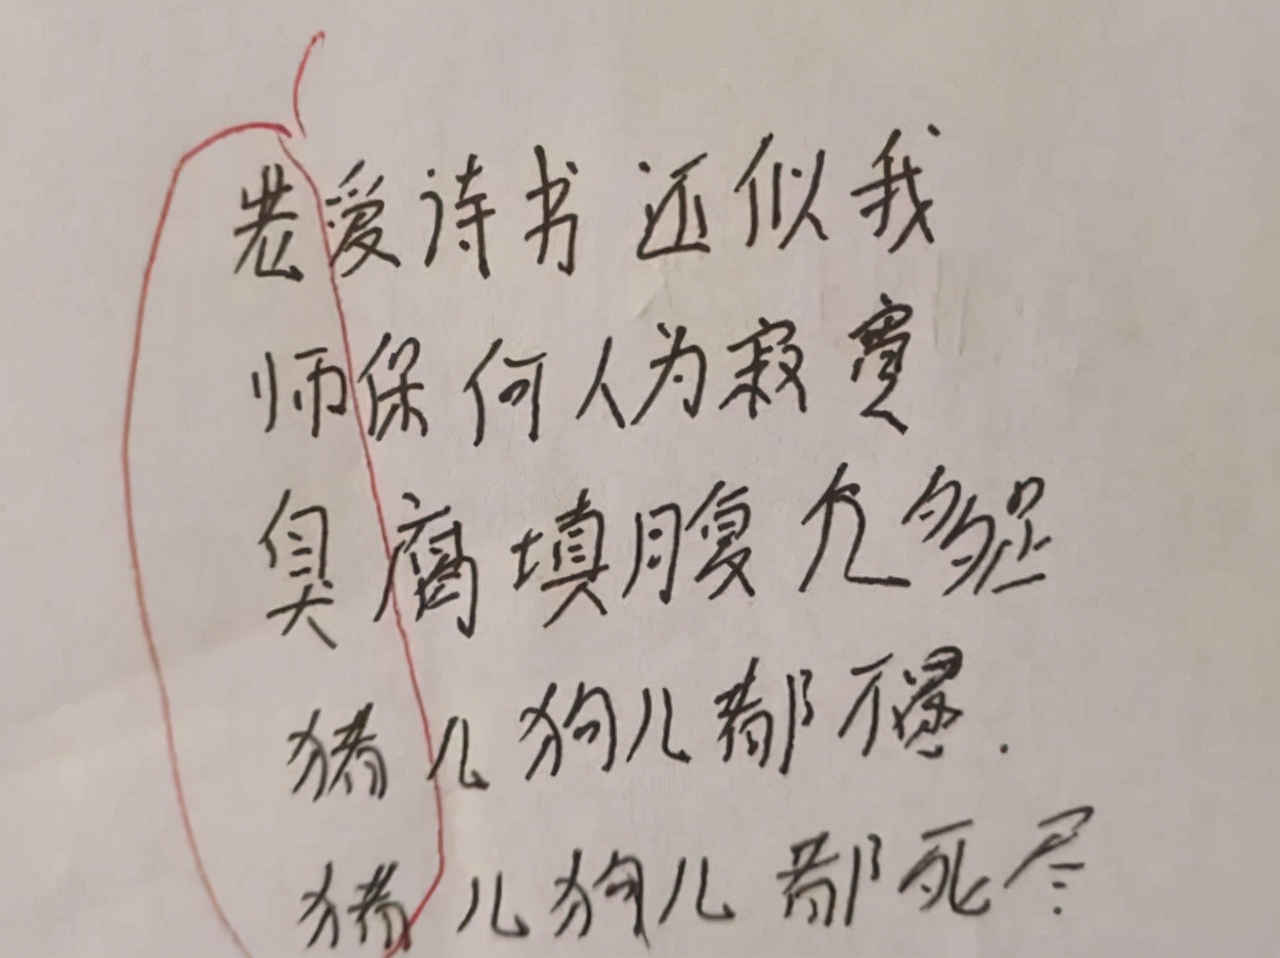 老爱诗书还似我
师保何人为寂寞
臭腐填腹尤多足
猪儿狗儿都不
猪儿狗儿都死尽